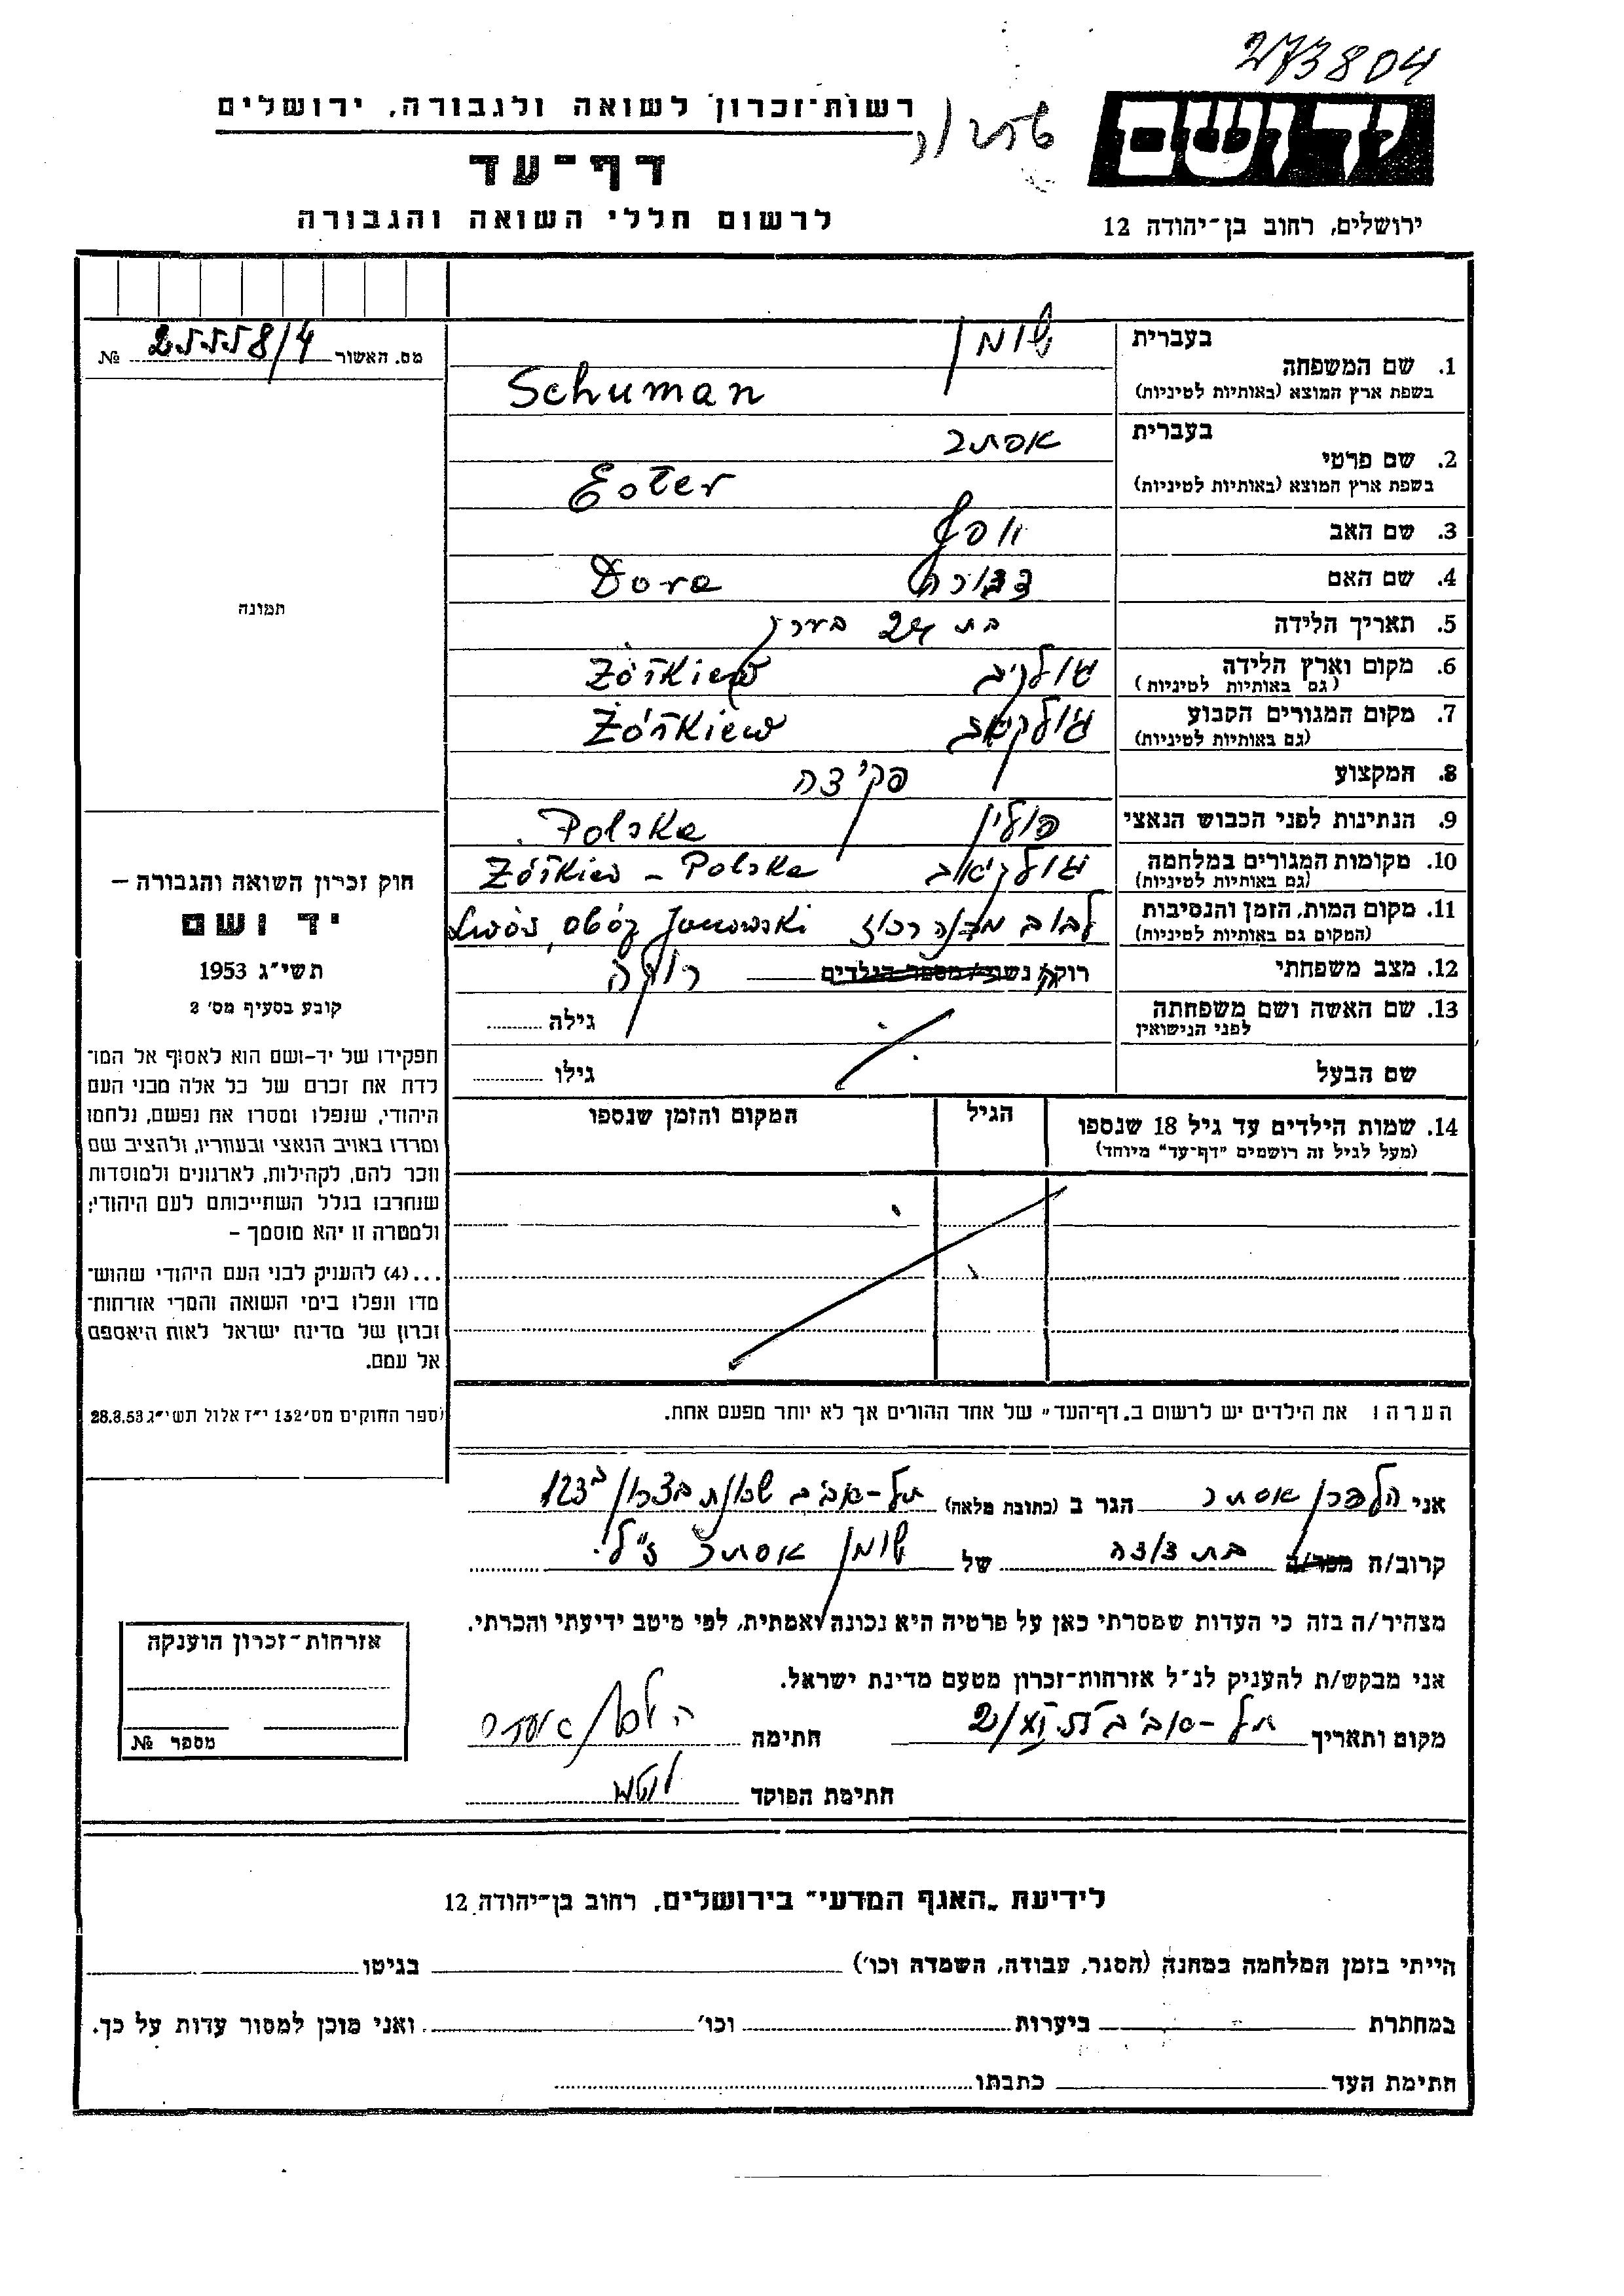 273804
רשות־זכרון לשואה ולגבורה, ירושלים
יד ושם
דף־עד
לרשום חללי השואה והגבורה
ירושלים, רחוב בן־יהודה 12
מס. האשור 25558/4 №
בעברית שומן
1. שם המשפחה
בשפת ארץ המוצא (באותיות לטיניות) Schuman
בעברית אסתר
2. שם פרטי
בשפת ארץ המוצא (באותיות לטיניות) Ester
3. שם האב יוסף
4. שם האם דבורה Dora
5. תאריך הלידה בת 24 בערך
6. מקום וארץ הלידה ז'ולקיב Żółkiew
(גם באותיות לטיניות)
7. מקום המגורים הקבוע ז'ולקיאב Żółkiew
(גם באותיות לטיניות)
8. המקצוע פקידה
9. הנתינות לפני הכבוש הנאצי פולין Polska
10. מקומות המגורים במלחמה ז'ולקיאב Żółkiew - Polska
(גם באותיות לטיניות)
11. מקום המות, הזמן והנסיבות לבוב מחנה רכוז Lwów, Obóz Janowski
(המקום גם באותיות לטיניות)
12. מצב משפחתי רוק/ה נשוי/ מספר הילדים רווקה
13. שם האשה ושם משפחתה
לפני הנישואין
גילה
שם הבעל
גילו
14. שמות הילדים עד גיל 18 שנספו
(מעל לגיל זה רושמים "דף־עד" מיוחד)
הגיל
המקום והזמן שנספו
תמונה
חוק זכרון השואה והגבורה –
יד ושם
תשי"ג 1953
קובע בסעיף מס' 2
תפקידו של יד-ושם הוא לאסוף אל המו־
לדת את זכרם של כל אלה מבני העם
היהודי, שנפלו ומסרו את נפשם, נלחמו
ומרדו באויב הנאצי ובעוזריו, ולהציב שם
וזכר להם, לקהילות, לארגונים ולמוסדות
שנחרבו בגלל השתייכותם לעם היהודי;
ולמטרה זו יהא מוסמך –
...(4) להעניק לבני העם היהודי שהוש־
מדו ונפלו בימי השואה והמרי אזרחות־
זכרון של מדינת ישראל לאות היאספם
אל עמם.
(ספר החוקים מס' 132 י"ז אלול תשי"ג 28.8.53
הערה: את הילדים יש לרשום ב„דף־העד" של אחד ההורים אך לא יותר מפעם אחת.
אני הלפרן אסתר הגר ב (כתובת מלאה) תל-אביב שכונת בצרון 123
קרוב/ה מכר/ה בת דודה של שומן אסתר ז"ל.
מצהיר/ה בזה כי העדות שמסרתי כאן על פרטיה היא נכונה ואמתית, לפי מיטב ידיעתי והכרתי.
אני מבקש/ת להעניק לנ"ל אזרחות־זכרון מטעם מדינת ישראל.
מקום ותאריך תל-אביב חתימה
חתימת הפוקד
אזרחות־זכרון הוענקה
מספר №
לידיעת „האגף המדעי" בירושלים, רחוב בן־יהודה 12
הייתי בזמן המלחמה במחנה (הסגר, עבודה, השמדה וכו') בגיטו
במחתרת ביערות וכו' ואני מוכן למסור עדות על כך.
חתימת העד כתבתו